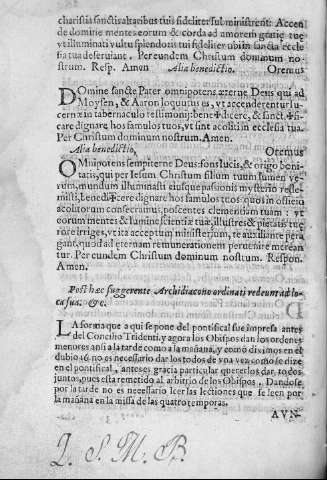 charistia sanctis altaribus tuis fideliter subministrent: Accen
de domine mentes eorum & corda ad amorem gratiæ tuæ
vt illuminati vultu splendoris tui fideliter tibi in sancta eccle
sia tua deseruiant. Per eundem Christum dominum no-
strum. Resp. Amen Alia benedictio. Oremus
DOmine sancte Pater omnipotens æterne Deus qui ad
Moysen, & Aaron locutus es, vt accenderentur lu-
cernæ in tabernaculo testimonij: bene✠dicere, & sanct✠ifi
care dignare hos famulos tuos, vt sint acoliti in ecclesia tua.
Per Christum dominum nostrum. Amen.
Alia benedictio, Oremus
OMnipotens sempiterne Deus: fons lucis, & origo boni-
tatis, qui per Iesum Christum filium tuum lumen ve-
rum, mundum illuminasti eiusque passionis mysterio rede-
misti, bene✠dicere dignare hos famulos tuos quos in officio
acolitorum consecramus, poscentes clementiam tuam: vt
eorum mentes & lumine scientiæ tuæ, illustres & pietatis tuæ
rore irriges, vt ita acceptum ministerium, te auxiliante pera
gant, quod ad eternam remunerationem peruenire merean
tur. Per eundem Christum dominum nostrum. Respon.
Amen.
Post hæc suggerente Archidiacono ordinati redeunt ad lo-
ca sua. &c.
LA forma que aqui se pone del pontifical fue impresa antes
del Concilio Tridenti. y agora los Obispos dan los ordenes
menores ansi a la tarde como a la mañana, y como diximos en el
dubio 16 no es necessario dar los todos de vna vez como se dize
en el pontifical, antes es gracia particular quererlos dar todos
juntos, pues esta remetido al arbitrio de los Obispos. Dandose
por la tarde no es necessario leer las lectiones que se leen por
la mañana en la missa de las quatro temporas.
AVN-
L. S. M. B